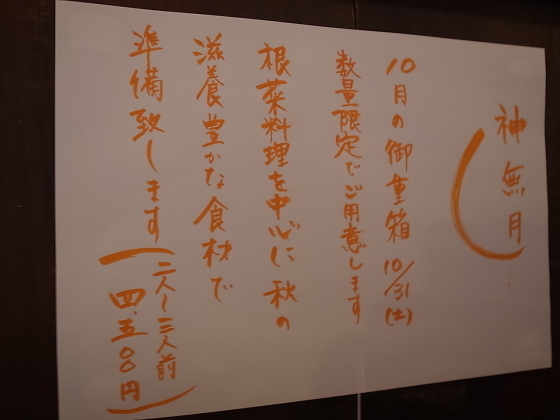 神無月
10月の御重箱 10/31(土)
数量限定でご用意します
根菜料理を中心に秋の
滋養豊かな食材で
準備致します
二人〜三人前
四.五〇〇円